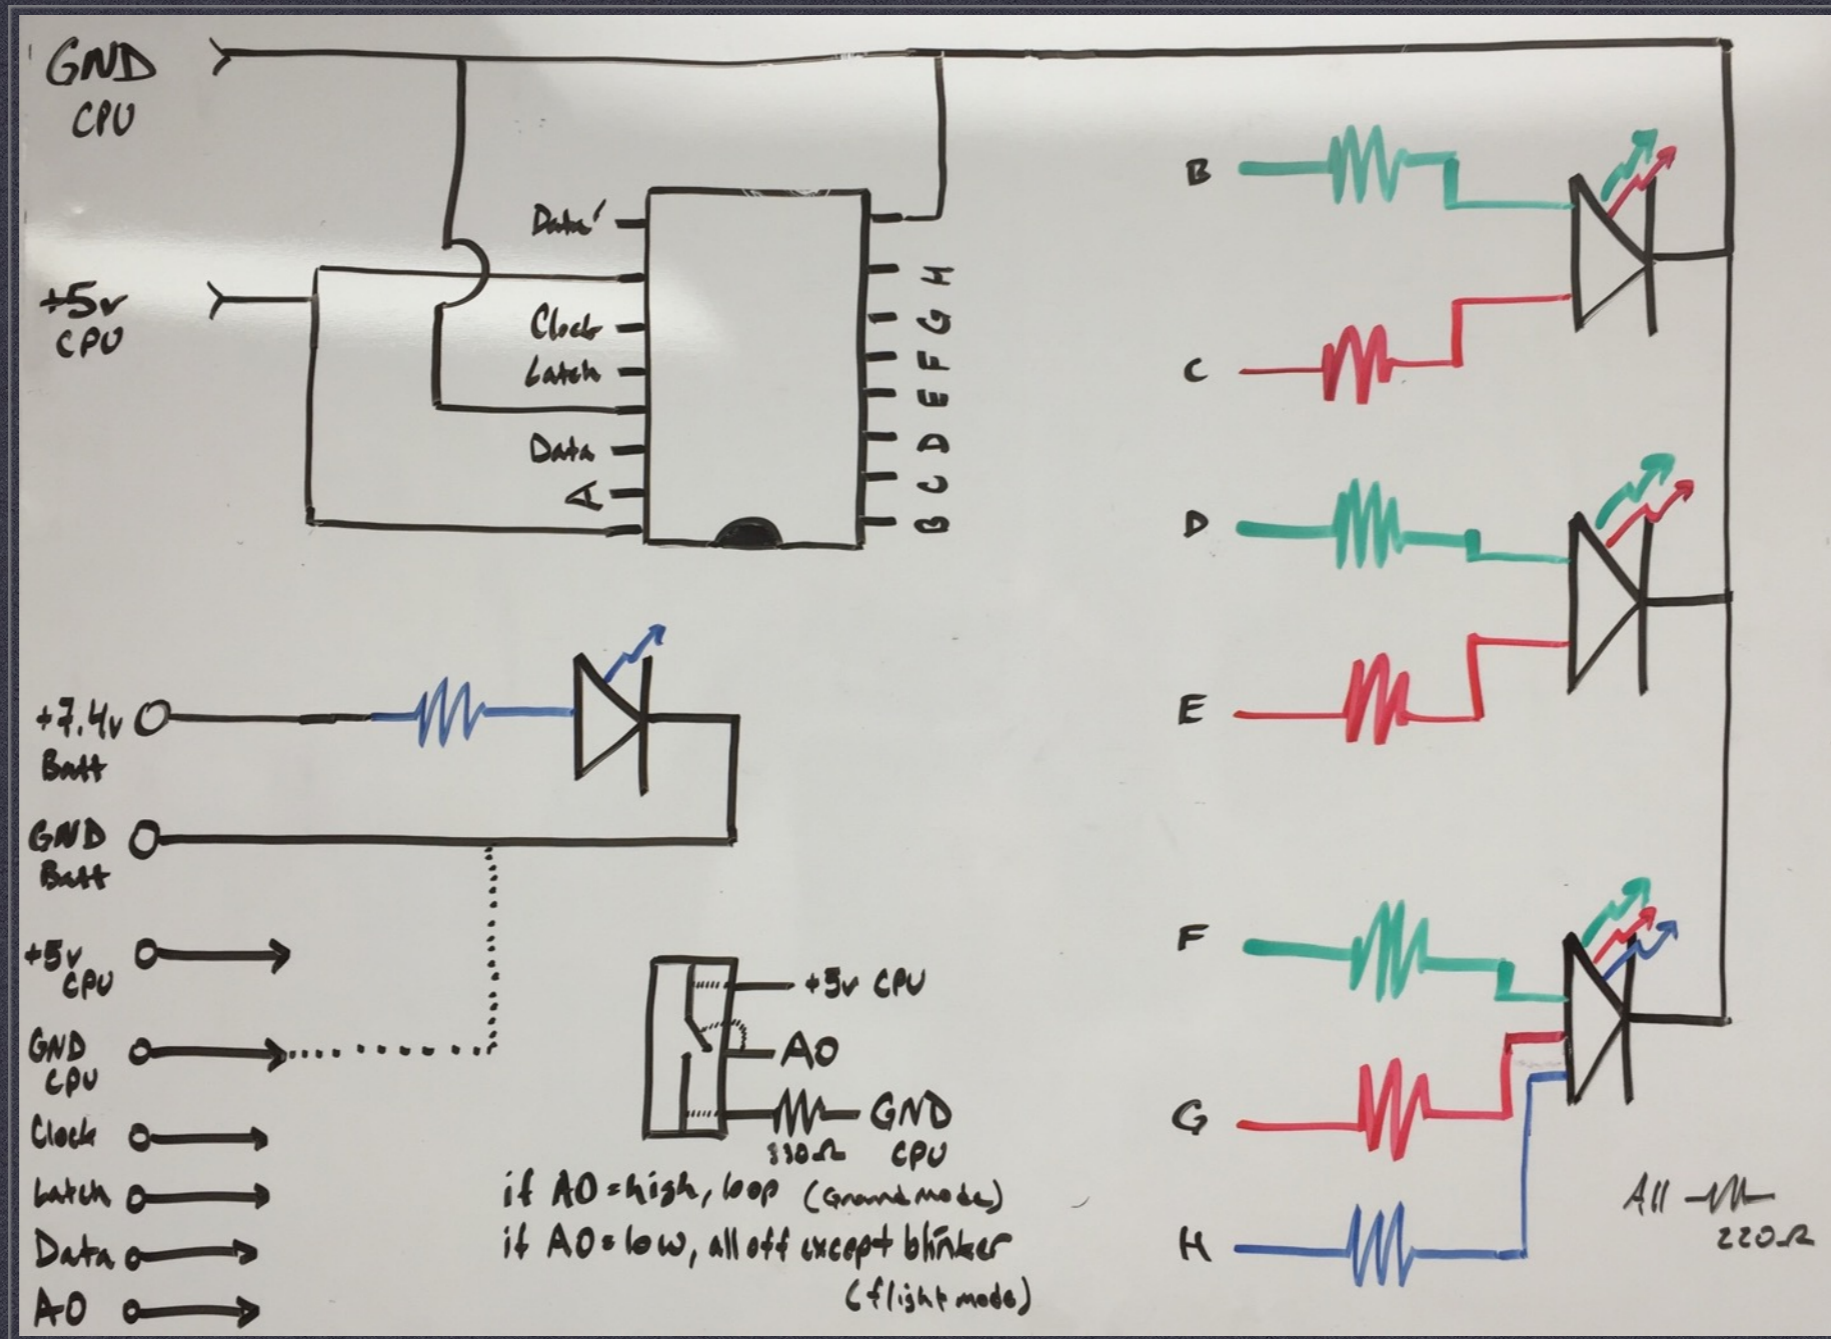 GND
CPU
+5v
CPU
Data'
Clock
Latch
Data
A
H
G
F
E
D
C
B
B
C
D
E
F
G
H
+7.4v
Batt
GND
Batt
+5v
CPU
GND
CPU
Clock
Latch
Data
A0
+5v CPU
A0
GND
CPU
if A0=high, loop (Ground mode)
if A0=low, all off except blinker
(flight mode)
All
220Ω